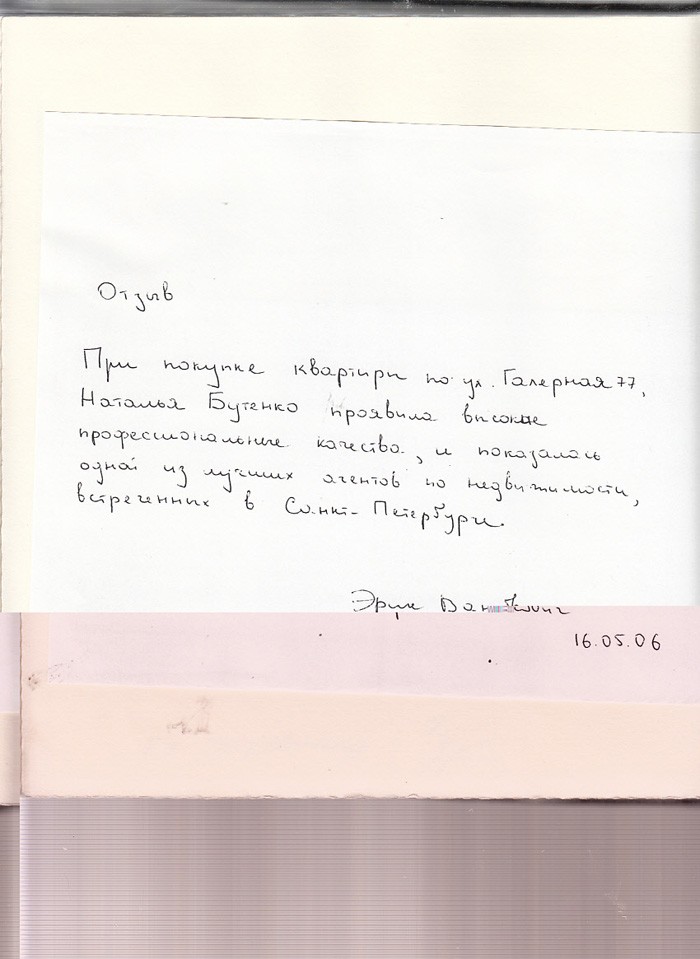 Отзыв
При покупке квартири по ул. Галерная 77,
Наталья Бутенко проявила високие
профессиональные качества, и показалась
одной из лучших агентов по недвижимости,
встреченных в Санкт-Петербурге.
Эрик
16.05.06